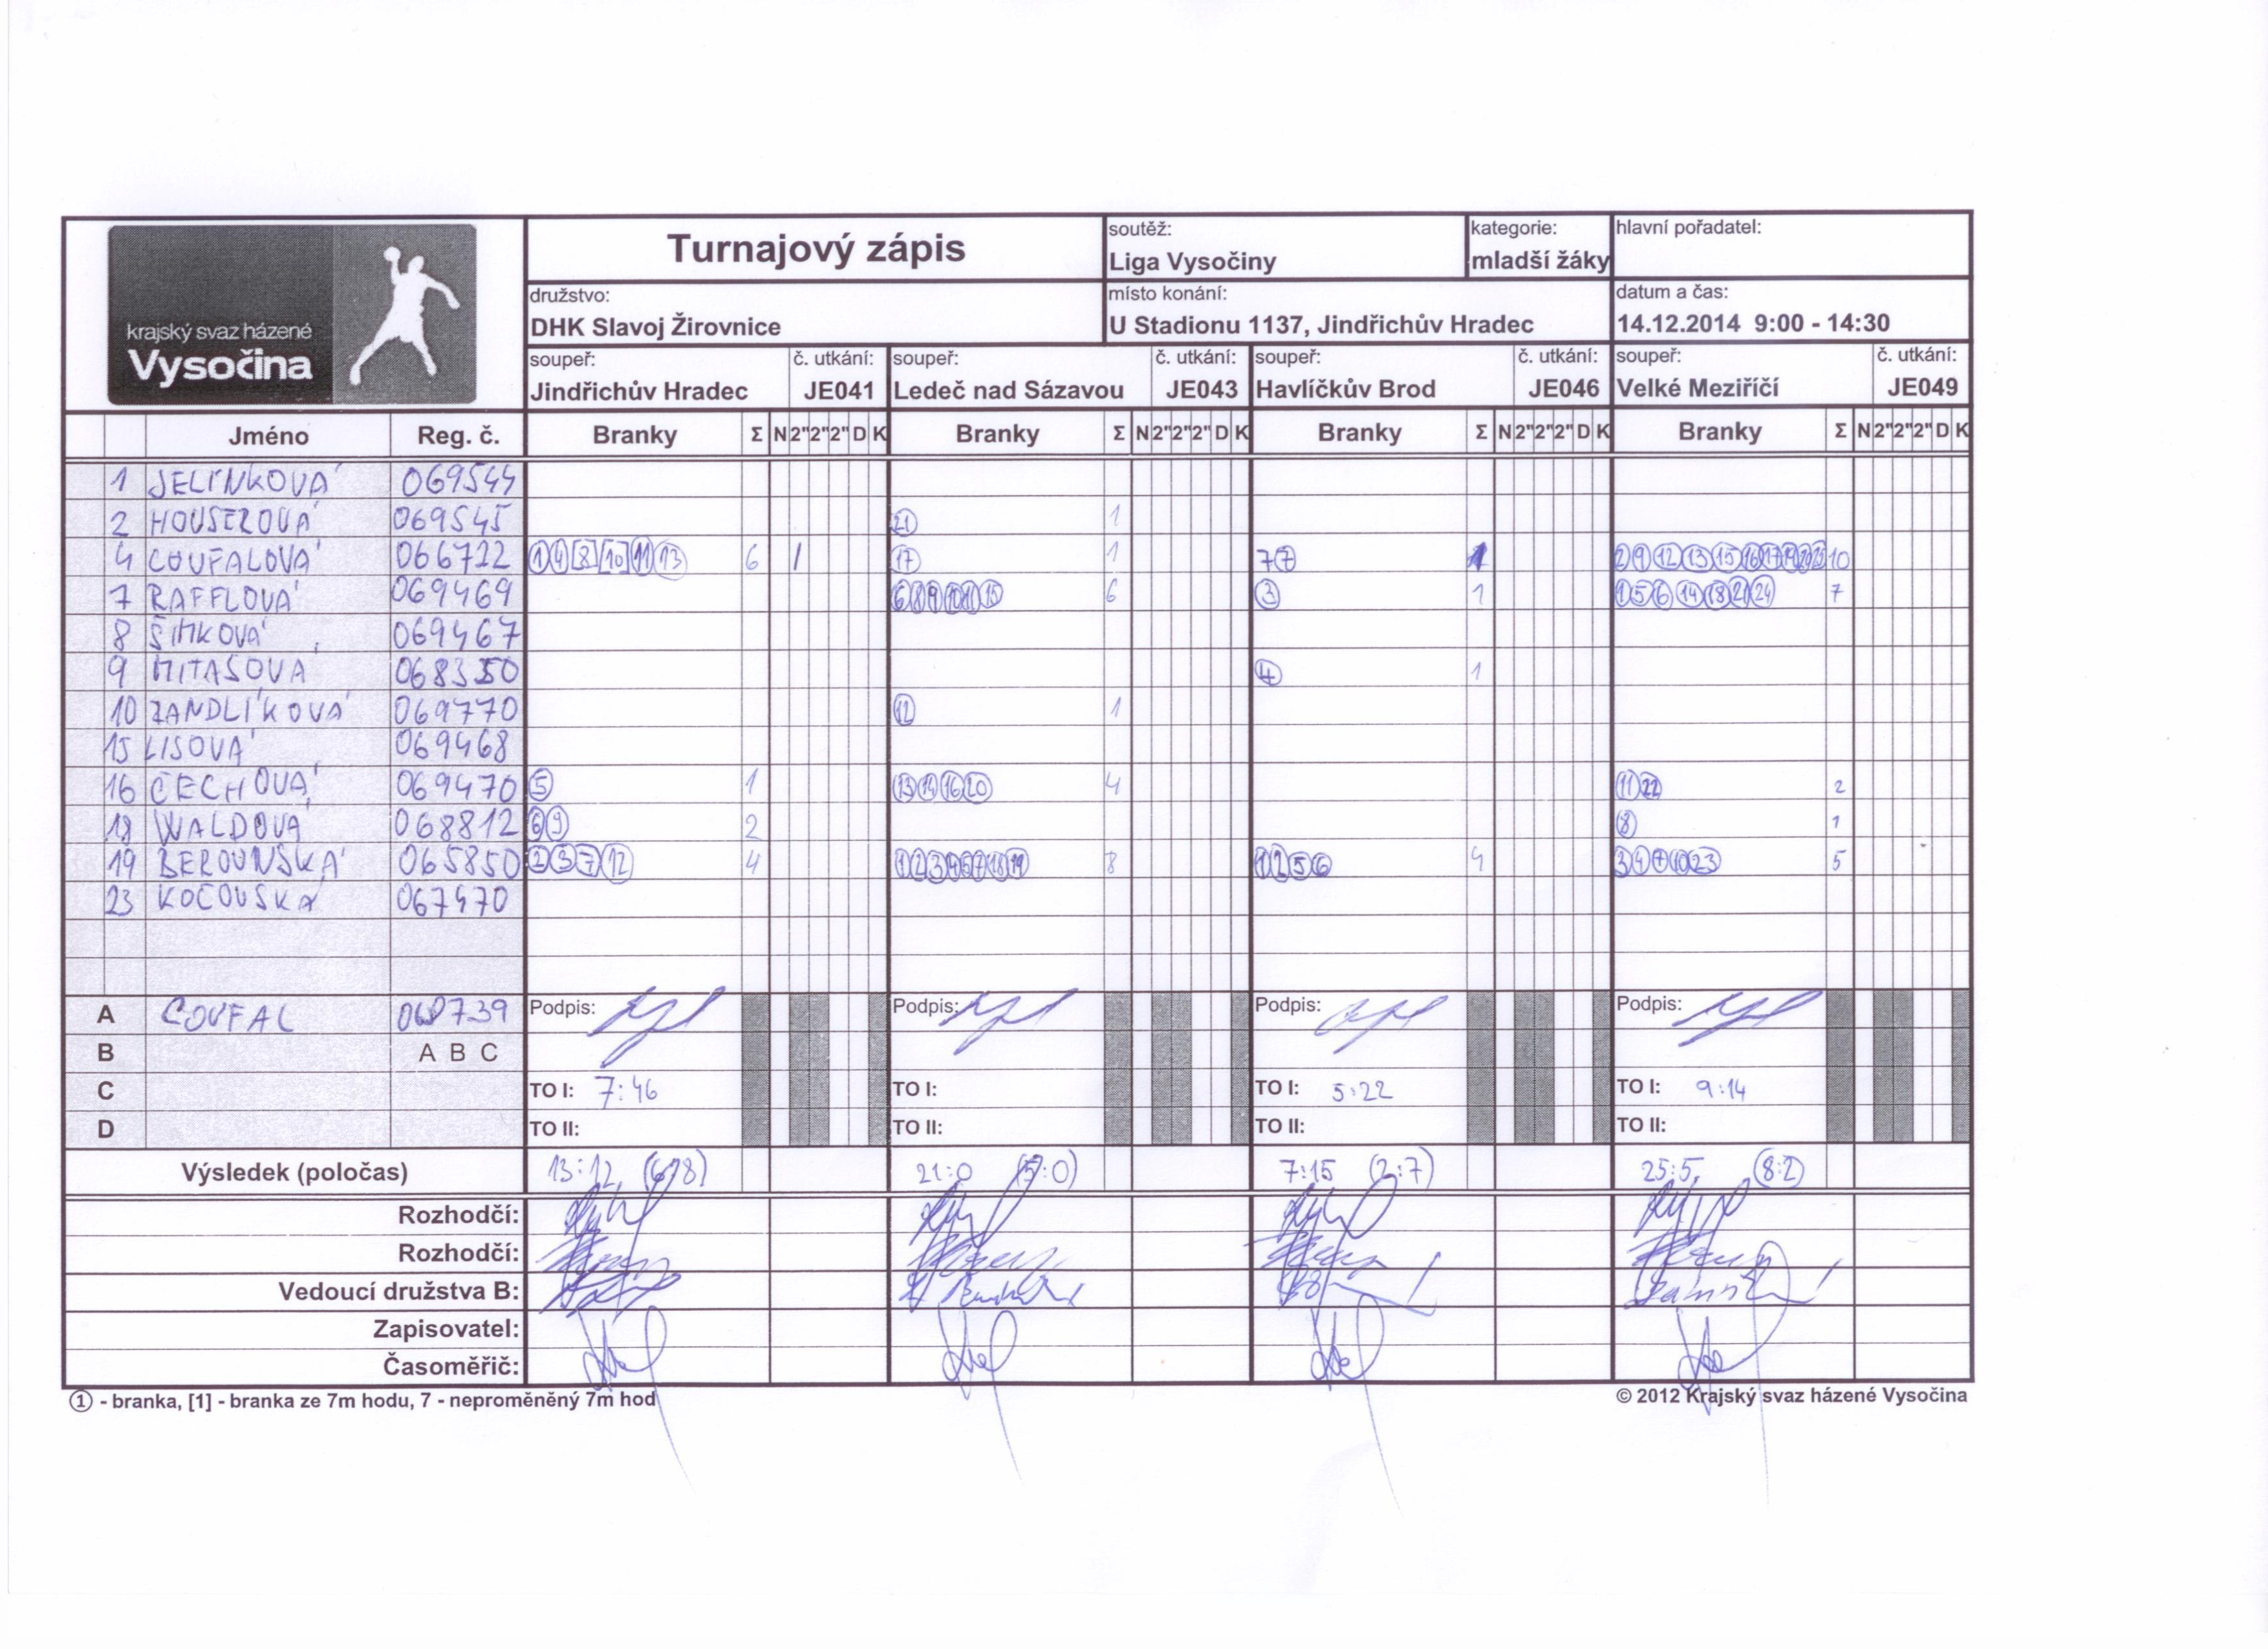 krajský svaz házené
Vysočina
Turnajový zápis
soutěž:
Liga Vysočiny
kategorie:
mladší žáky
hlavní pořadatel:
družstvo:
DHK Slavoj Žirovnice
místo konání:
U Stadionu 1137, Jindřichův Hradec
datum a čas:
14.12.2014 9:00 - 14:30
soupeř: č. utkání: soupeř: č. utkání: soupeř: č. utkání: soupeř: č. utkání:
Jindřichův Hradec JE041 Ledeč nad Sázavou JE043 Havlíčkův Brod JE046 Velké Meziříčí JE049
Jméno Reg. č. Branky Σ N 2" 2" 2" D K Branky Σ N 2" 2" 2" D K Branky Σ N 2" 2" 2" D K Branky Σ N 2" 2" 2" D K
1 JELÍNKOVÁ 069544
2 HOUSEROVÁ 069545 21 1
4 COUFALOVÁ 066722 1 4 [8] [10] 11 13 6 1 17 1 7 7 1 2 9 12 13 15 16 17 19 20 25 10
7 RAFFLOVÁ 069469 6 8 9 10 11 15 6 3 1 1 5 6 14 18 21 24 7
8 ŠIMKOVÁ 069467
9 MITÁŠOVÁ 068350 4 1
10 ZANDLÍKOVÁ 069770 12 1
15 LISOVÁ 069468
16 ČECHOVÁ 069470 5 1 13 14 16 20 4 11 22 2
18 WALDOVÁ 068812 6 9 2 8 1
19 BEROUNSKÁ 065850 2 3 7 12 4 1 2 3 4 5 7 18 19 8 1 2 5 6 4 3 4 7 10 23 5
23 KOCOUSKÁ 067470
A COUFAL Podpis: Podpis: Podpis: Podpis:
B A B C
C TO I: 7:46 TO I: TO I: 5:22 TO I: 9:14
D TO II: TO II: TO II: TO II:
Výsledek (poločas) 13:12 (6:8) 21:0 (5:0) 7:15 (2:7) 25:5 (8:2)
Rozhodčí:
Rozhodčí:
Vedoucí družstva B:
Zapisovatel:
Časoměřič:
① - branka, [1] - branka ze 7m hodu, 7 - neproměněný 7m hod
© 2012 Krajský svaz házené Vysočina